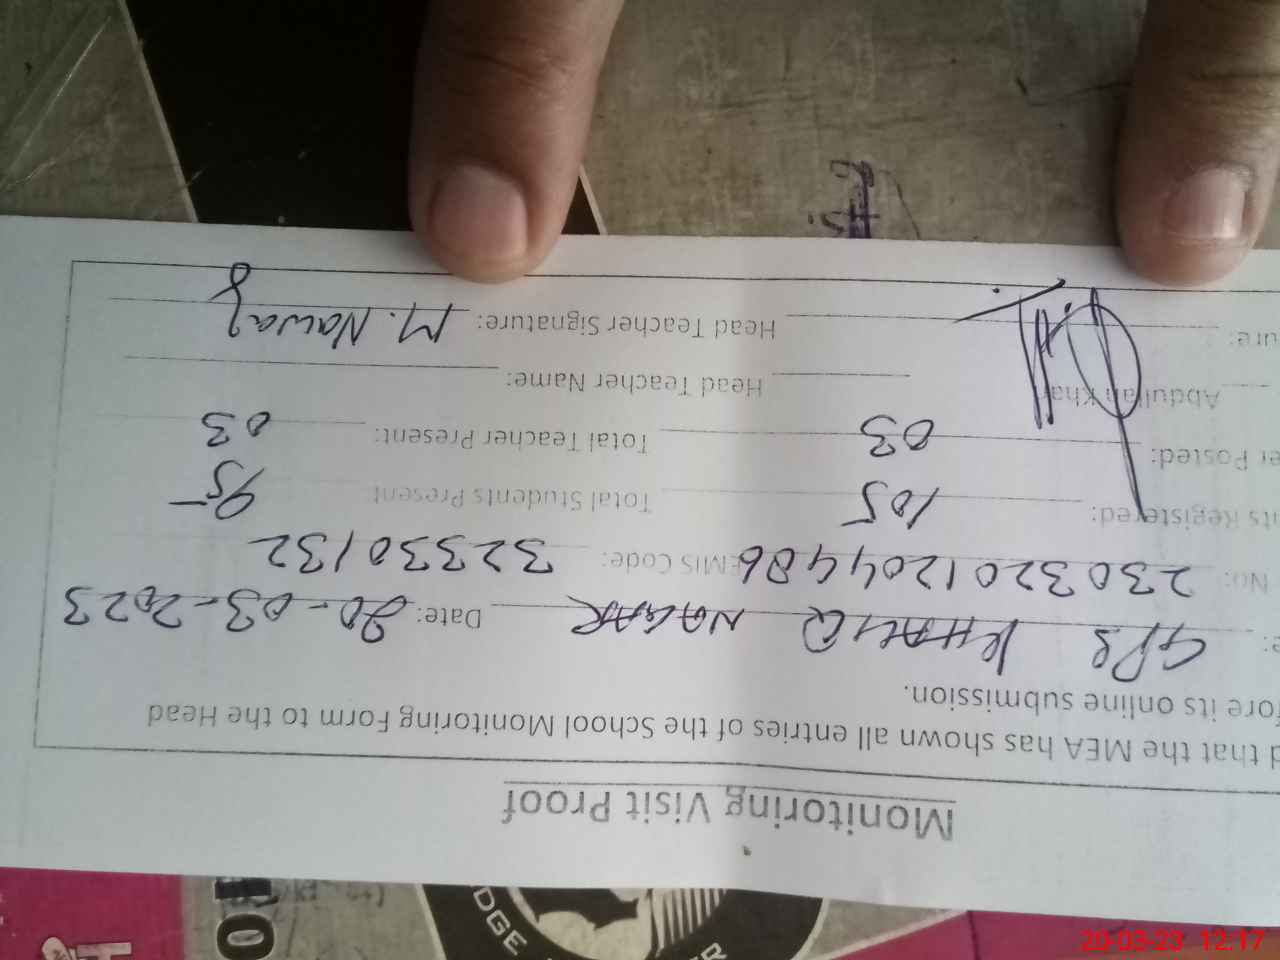 Monitoring Visit Proof
d that the MEA has shown all entries of the School Monitoring Form to the Head
fore its online submission.
e: GPS KHALIQ NAGAR Date: 20-03-2023
No: 2303201204486 EMIS Code: 32330132
its Registered: 105 Total Students Present 95
er Posted: 03 Total Teacher Present: 03
Abdullah Khan Head Teacher Name:
ure: Head Teacher Signature: M. Nawaz
DGE
20-03-23 12:17